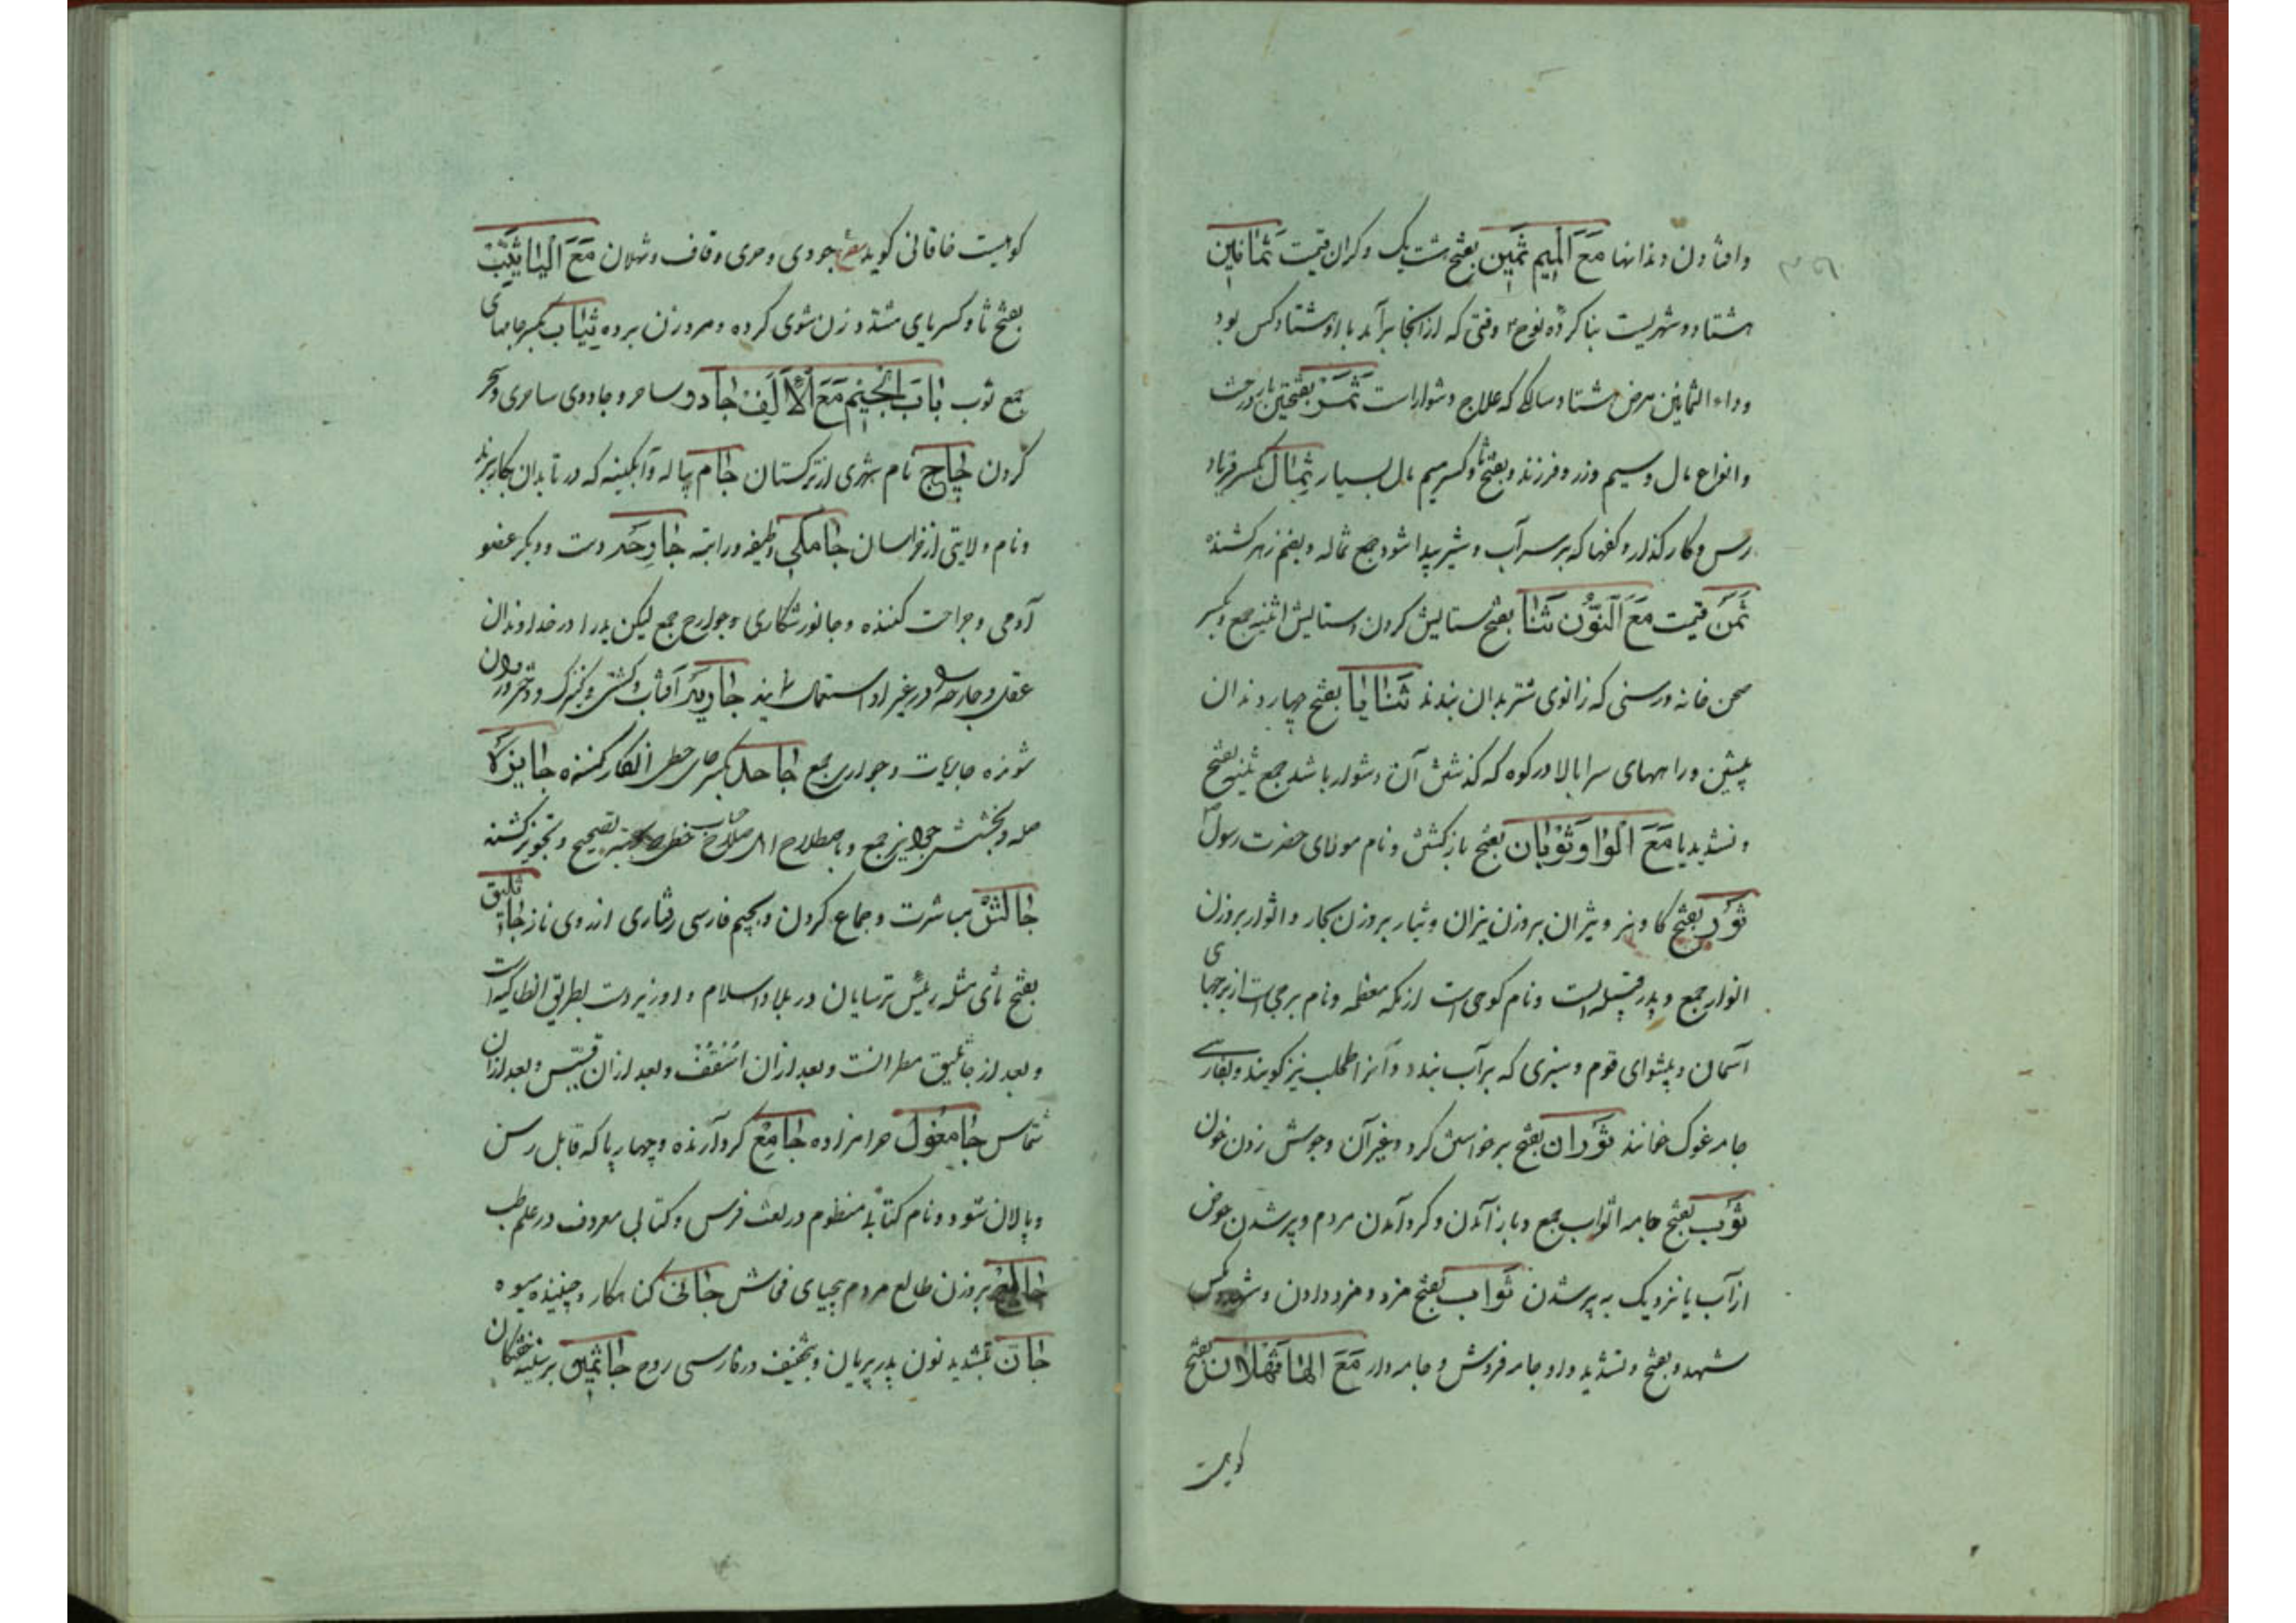 وافتادن دندانها مَعَ المیم ثمین بفتح هشت یک و کران قیمت ثمانین
هشتاد و شهریست بنا کرده نوح وقتی که از آنجا برآمد با او هشتاد کس بود
وداء الثمانین مرض هشتاد سالکی که علاج دشوارست ثمر بفتحتین بار درخت
وانواع مال وسیم وزر و فرزند و بفتح ثا وکسر میم مال بسیار ثمال بکسر فریاد
رس و کار کذار و کفها که بر سر آب و شیر پیدا شود جمع ثماله و بضم زهر کشنده
ثمن قیمت مَعَ النّون ثنا بفتح ستایش کردن و ستایش اثنیه جمع و بکسر
صحن خانه و رسنی که زانوی شتر بدان بندند ثنایا بفتح چهار دندان
پیشین و راههای سرابالا در کوه که کذشتن آن دشوار باشد جمع ثنیه بفتح
و تشدید یا مَعَ الواو ثوبان بفتح بازکشتن و نام مولای حضرت رسول
ثور بفتح کاو نر و ثیران بروزن نیزان و ثیار بروزن بکار و اثوار بروزن
انوار جمع و پدر قبیله است و نام کوهی است از مکه معظمه و نام برجی است از برجهای
آسمان و پیشوای قوم و سبزی که بر آب بندد و آنرا طحلب نیز کویند و بفارسی
جامه غوک خوانند ثوران بفتح برخواستن کرد و غیر آن و جوش زدن خون
ثوب بفتح جامه اثواب جمع و باز آمدن و کرد آمدن مردم و پر شدن حوض
از آب یا نزدیک به پر شدن ثواب بفتح مزد و مزد دادن و
شهد و بفتح و تشدید واو جامه فروش و جامه دار مَعَ الها ثهلان بفتح
کوهیست
کوهیست خاقانی کوید ع جودی و حری و قاف و ثهلان مَعَ الیا ثیّب
بفتح ثا و کسر یای مشدد زن شوی کرده و مرد زن برده ثیاب بکسر جامهای
جمع ثوب باب الجیم مَعَ الالف جادو ساحر و جادوی ساحری و سحر
کردن چاچ نام شهری از ترکستان جام پیاله و آبکینه که در تابدان بکار برند
و نام ولایتی از خراسان جامکی وظیفه و راتبه جارحه دست و دیکر عضو
آدمی و جراحت کننده و جانور شکاری و جوارح جمع لیکن بدرا در خداوندان
عقل و جارحه در غیر او استعمال نمایند جاریه آفتاب و کشتی و کنیزک و دختر و روان
شونده جاریات و جواری جمع جاحد بکسر حای حطی انکار کننده جایزه
صله و بخشش جوایز جمع و باصطلاح تصحیح و تجویز کننده
جالش مباشرت و جماع کردن و بجیم فارسی رفتاری از روی ناز جاثلیق
بفتح ثای مثلثه رئیس ترسایان در بلاد اسلام و او زیر دست بطریق انطاکیه است
و بعد از جاثلیق مطرانست و بعد از آن اسقف و بعد از آن قسیس و بعد از آن
شماس جامغول حرامزاده جامع کرد آرنده و چهارپا که قابل رسن
و پالان شود و نام کتابی منظوم در لغت فرس و کتابی معروف در علم طب
جالع بروزن طالع مردم بیحیای فحاش جانی کناهکار و چیننده میوه
جان بتشدید نون پدر پریان و بتخفیف در فارسی روح جاثلیق